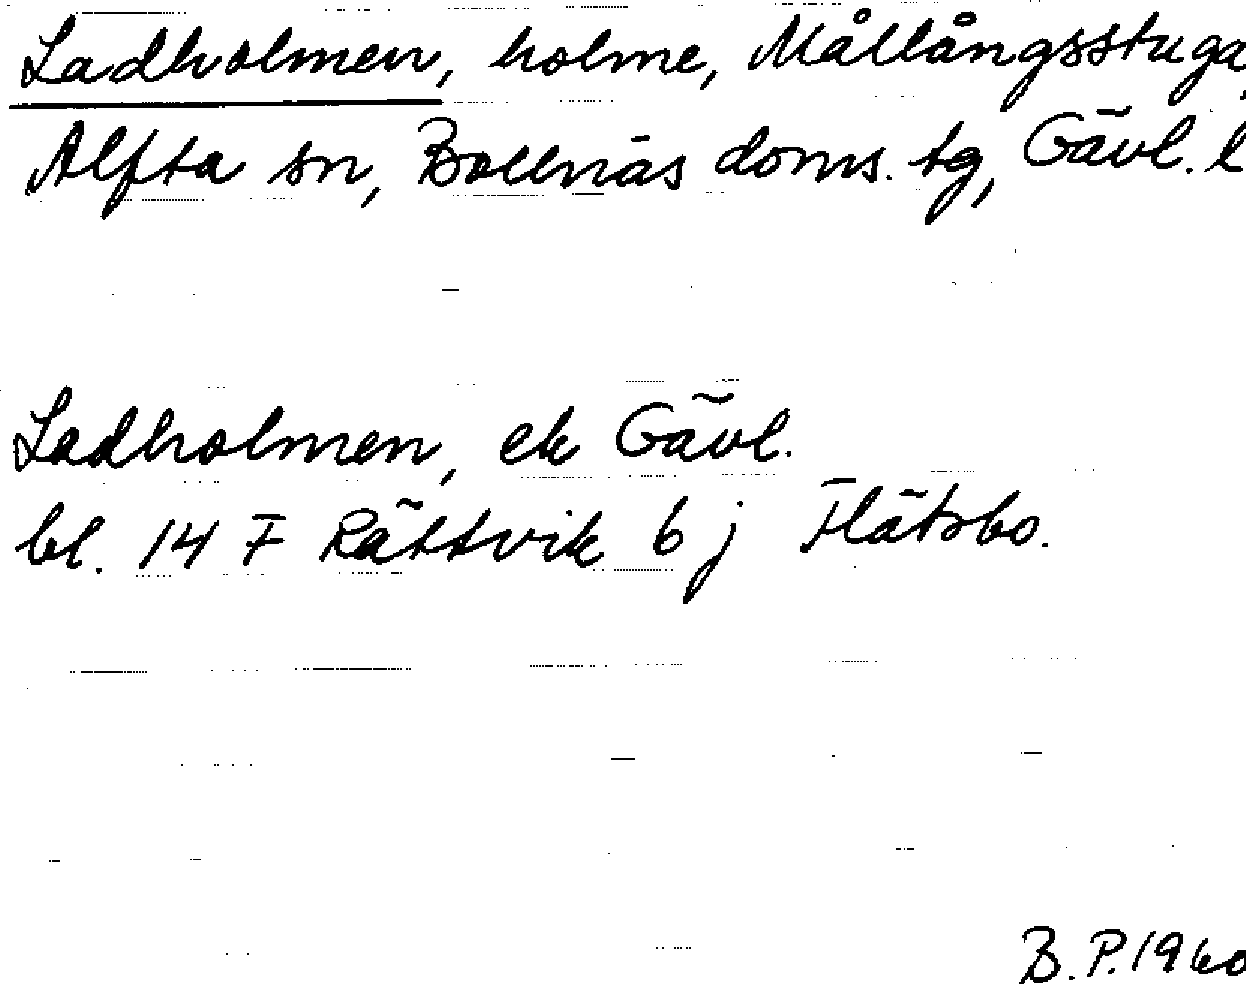 Ladholmen, holme, Mållångsstuga,
Alfta sn, Bollnäs doms. tg, Gävl. l
Ladholmen, ek Gävl.
bl. 14 F Rättvik 6 j Flätsbo.
B.P.1960